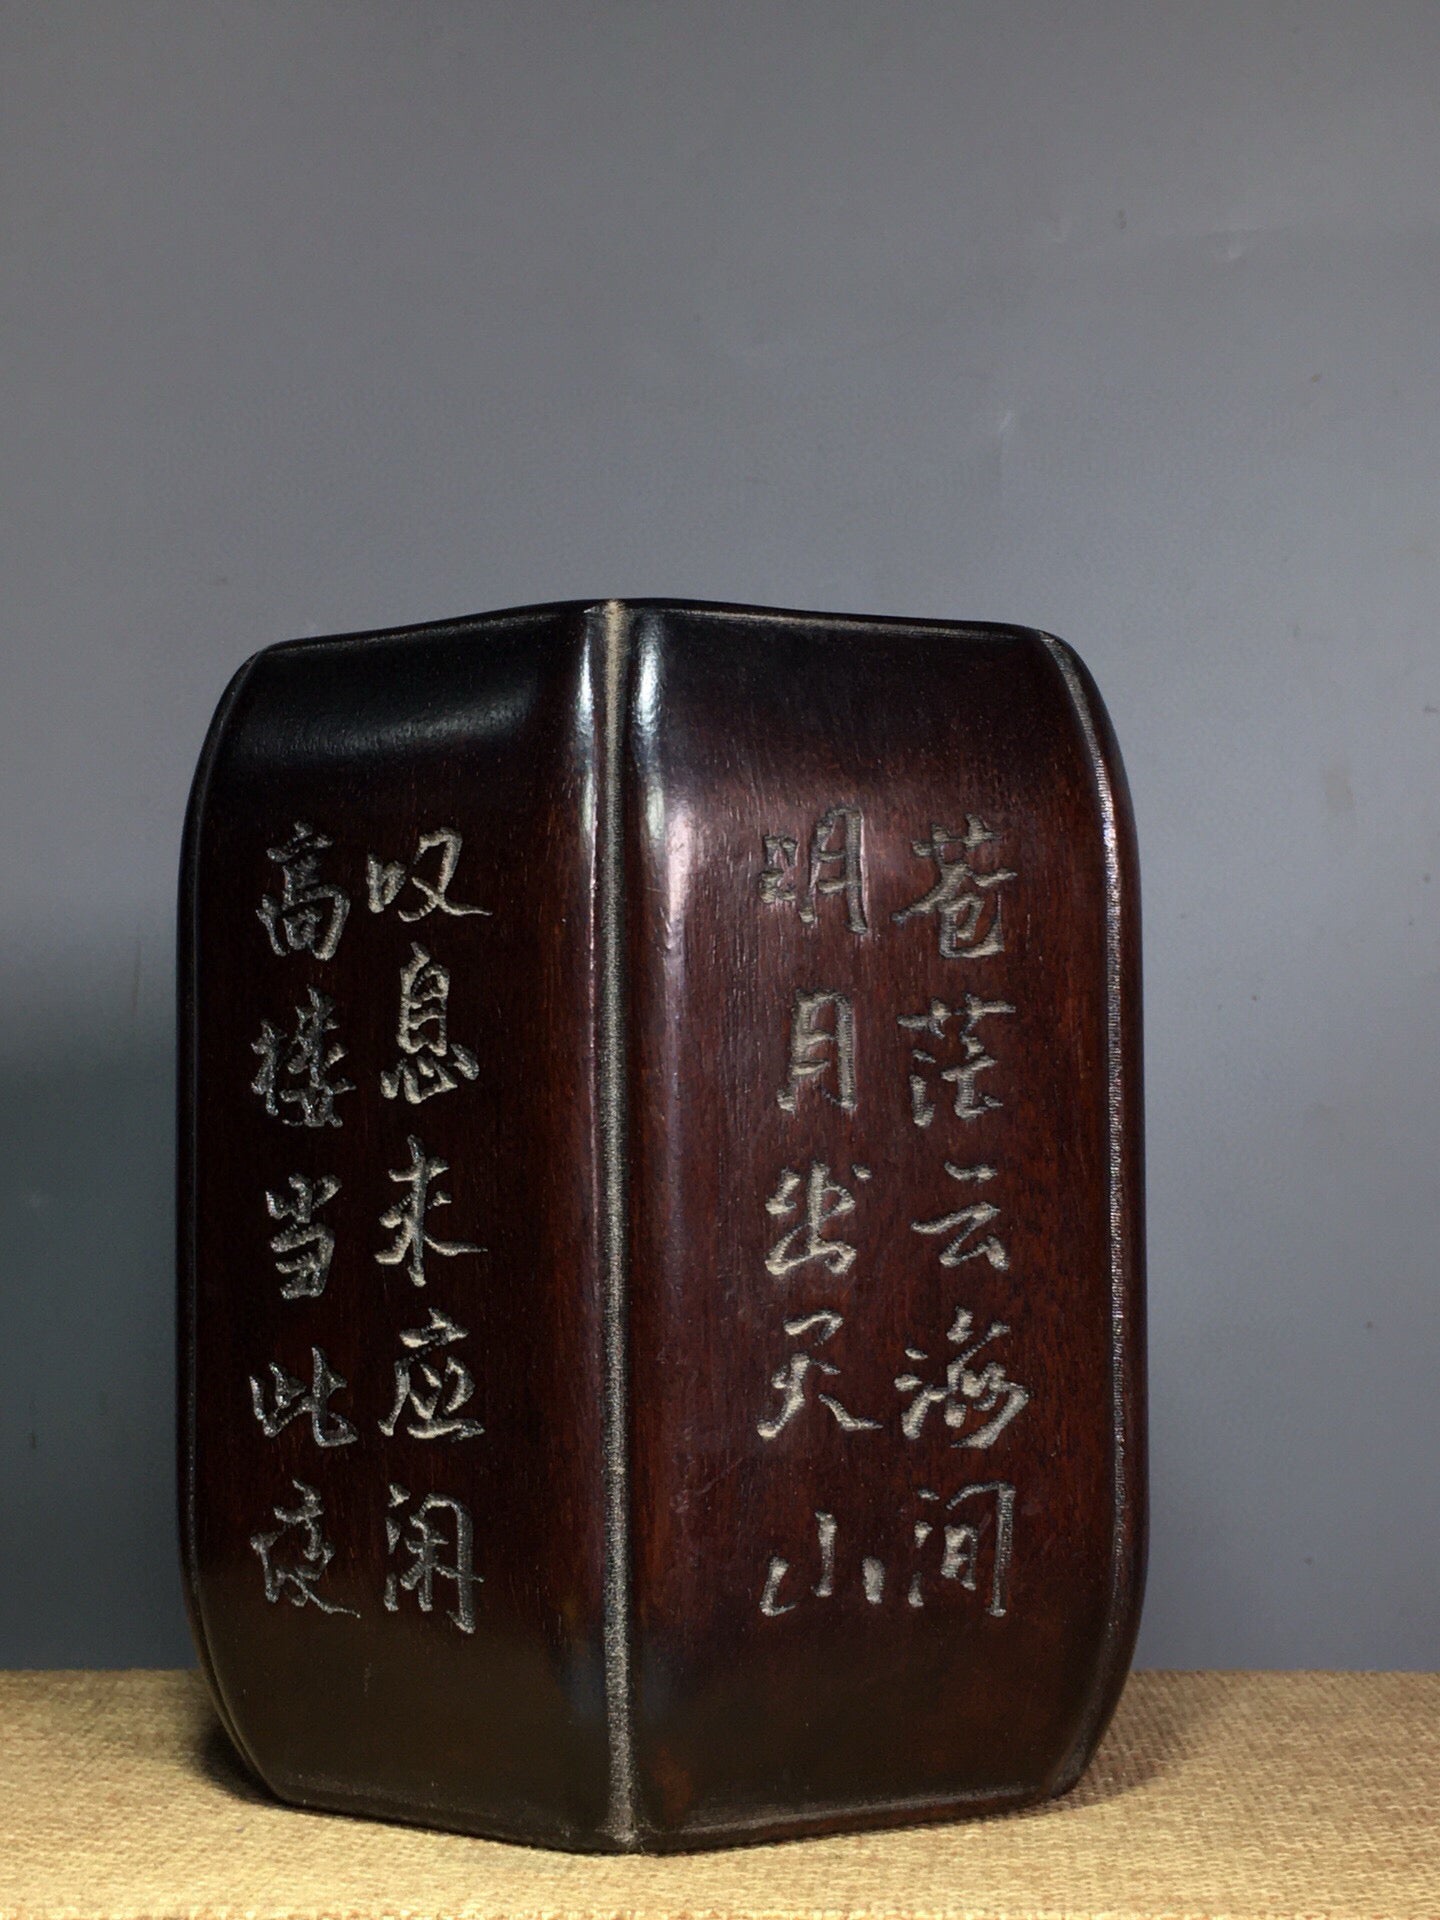 高楼当此夜
叹息未应闲
明月出天山
苍茫云海间